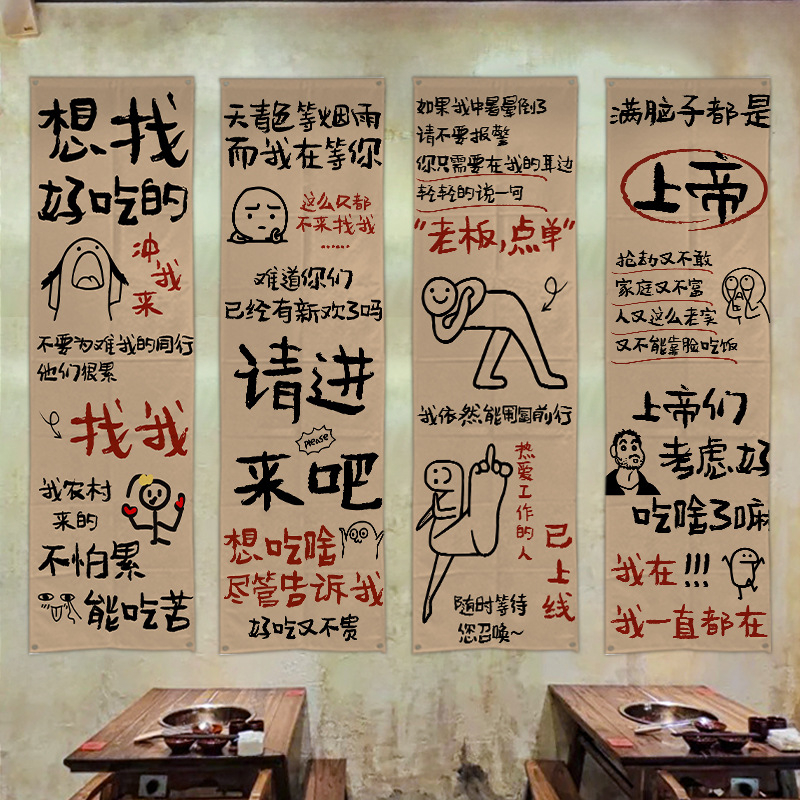 想找
好吃的
冲
我
来
不要为难我的同行
他们很累
找我
我农村
来的
不怕累
能吃苦
天青色等烟雨
而我在等你
这么久都
不来找我
......
难道你们
已经有新欢了吗
请进
please
来吧
想吃啥
尽管告诉我
好吃又不贵
如果我中暑晕倒了
请不要报警
你只需要在我的耳边
轻轻的说一句
“老板,点单”
我依然能匍匐前行
热爱工作的人
已上线
随时等待
您召唤~
满脑子都是
上帝
抢劫又不敢
家庭又不富
人又这么老实
又不能靠脸吃饭
上帝们
考虑好
吃啥了嘛
我在!!!
我一直都在